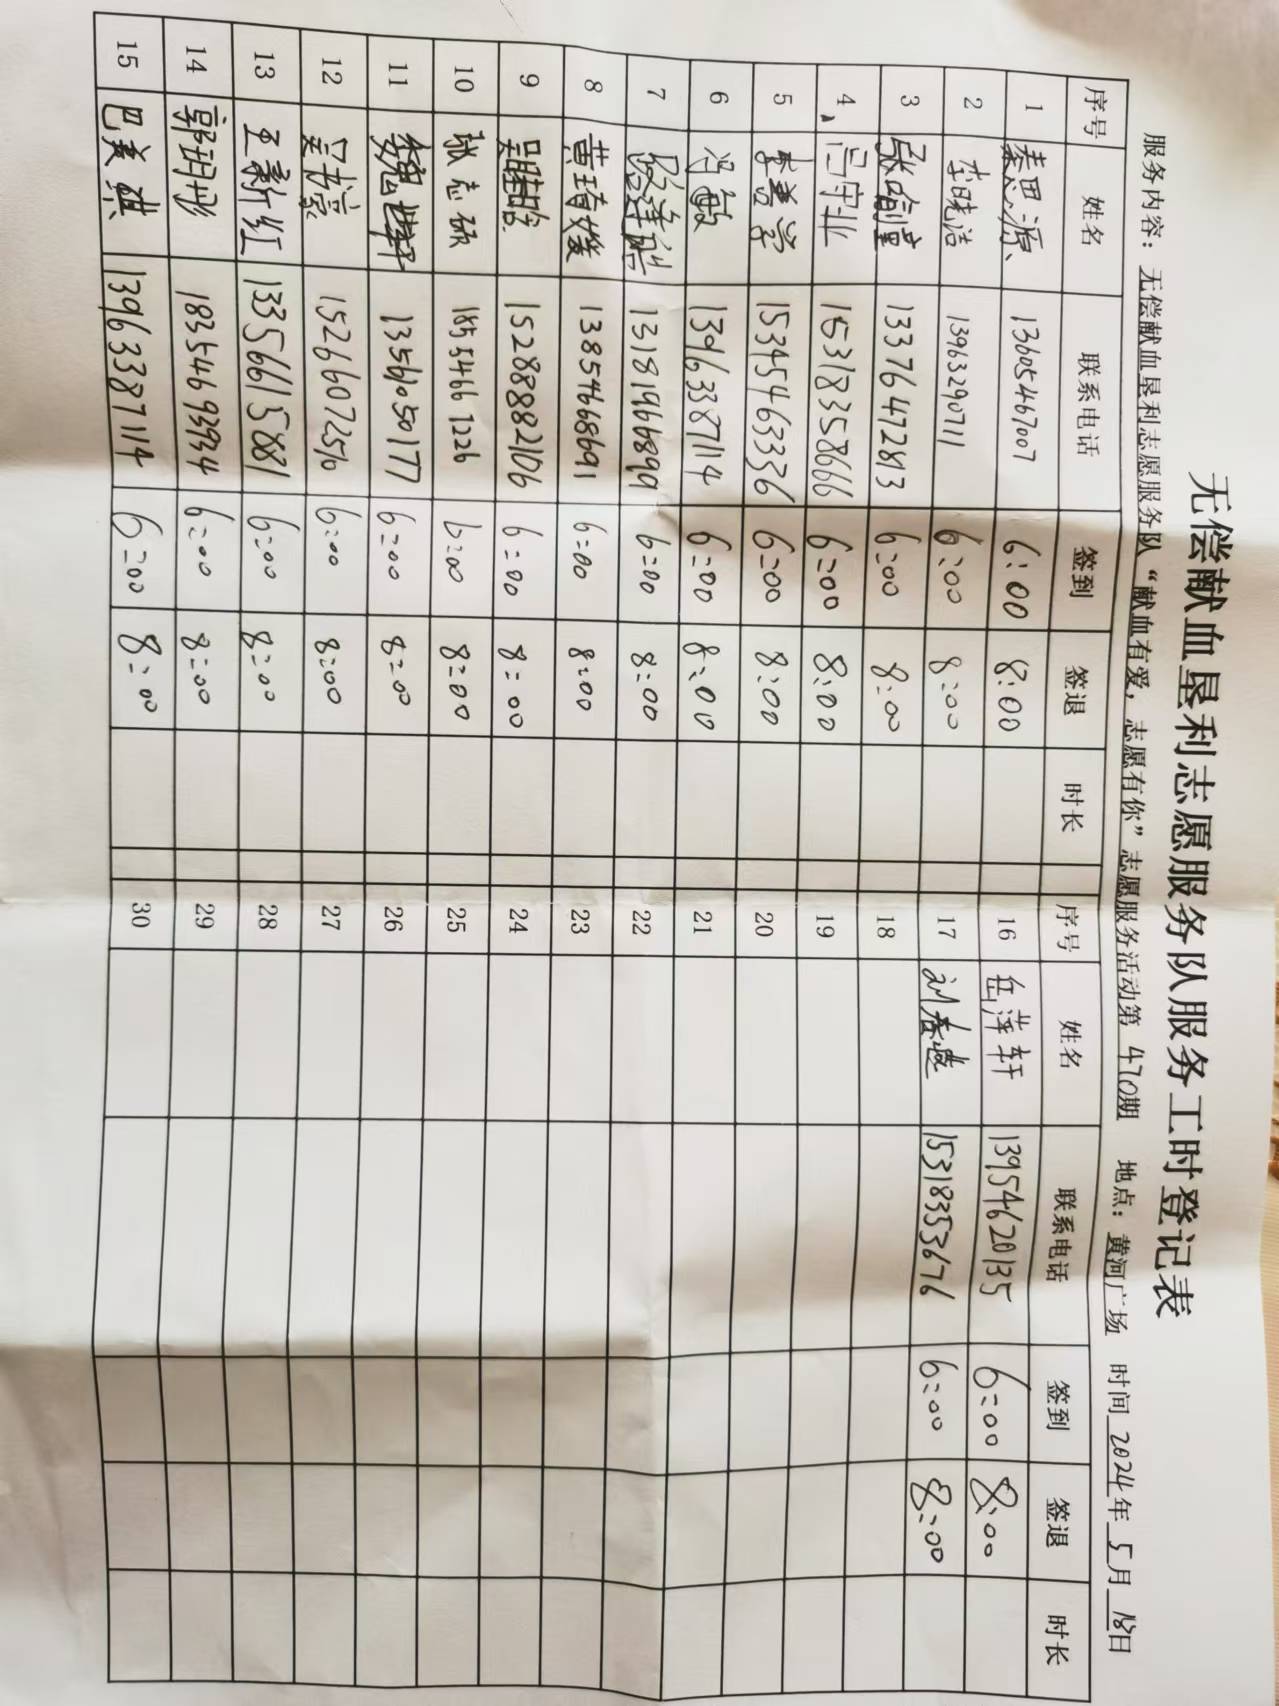 无偿献血垦利志愿服务队服务工时登记表
服务内容：无偿献血垦利志愿服务队“献血有爱，志愿有你”志愿服务活动第 470期 地点：黄河广场 时间 2024年 5月 18日
序号 姓名 联系电话 签到 签退 时长 序号 姓名 联系电话 签到 签退 时长
1 秦思源 13605467007 6:00 8:00 16 岳萍轩 13954620135 6:00 8:00
2 李晓洁 13963290711 6:00 8:00 17 刘春燕 15318353676 6:00 8:00
3 13376472813 6:00 8:00 18
4 吕守业 15318358666 6:00 8:00 19
5 李普学 15345463336 6:00 8:00 20
6 冯敏 13963387114 6:00 8:00 21
7 13181966899 6:00 8:00 22
8 黄琦媛 13854668691 6:00 8:00 23
9 15288882106 6:00 8:00 24
10 张志硕 18554667226 6:00 8:00 25
11 13561050177 6:00 8:00 26
12 15266072510 6:00 8:00 27
13 王新红 13356615881 6:00 8:00 28
14 郭玥彤 18354693994 6:00 8:00 29
15 巴美琪 13963387114 6:00 8:00 30